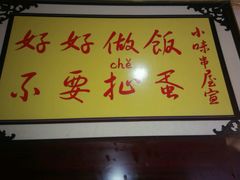 好好做饭
chě
不要扯蛋
小味串屋宣